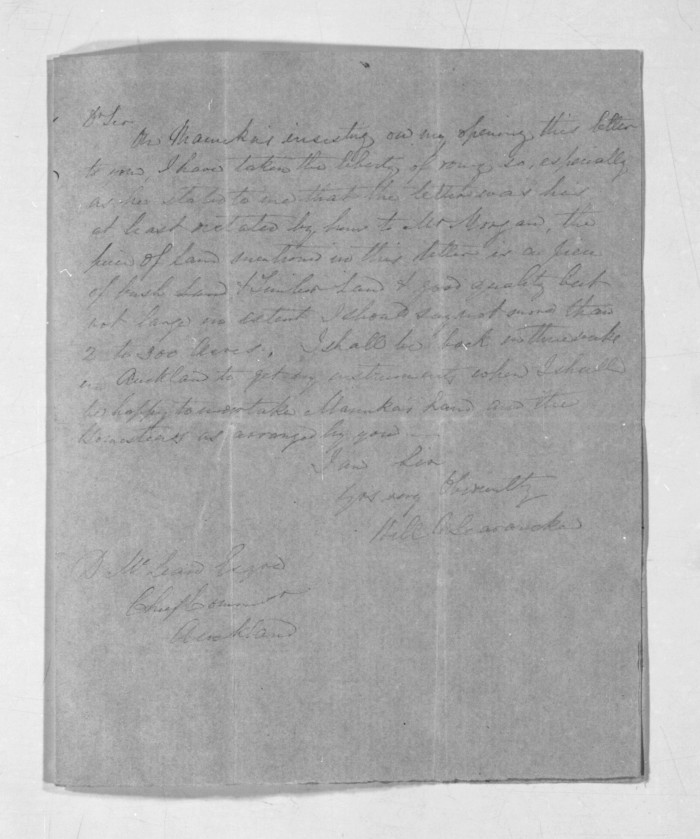 Dr Sir
On Manuka's insisting on my opening this letter
to you I have taken the liberty of doing so, especially
as he stated to me that the letter was his
at least dictated by him to Mr Morgan, the
piece of land mentioned in this letter is a piece
of bush land & Timber Land of good quality but
not large in extent I should say not more than
2 to 300 Acres. I shall be back in three weeks
in Auckland to get my instruments when I shall
be happy to undertake Manuka's Land and the
Homesteads as arranged by you —
I am Sir
Yrs very Obediently
Will
D McLean Esqre
Chief Commr
Auckland